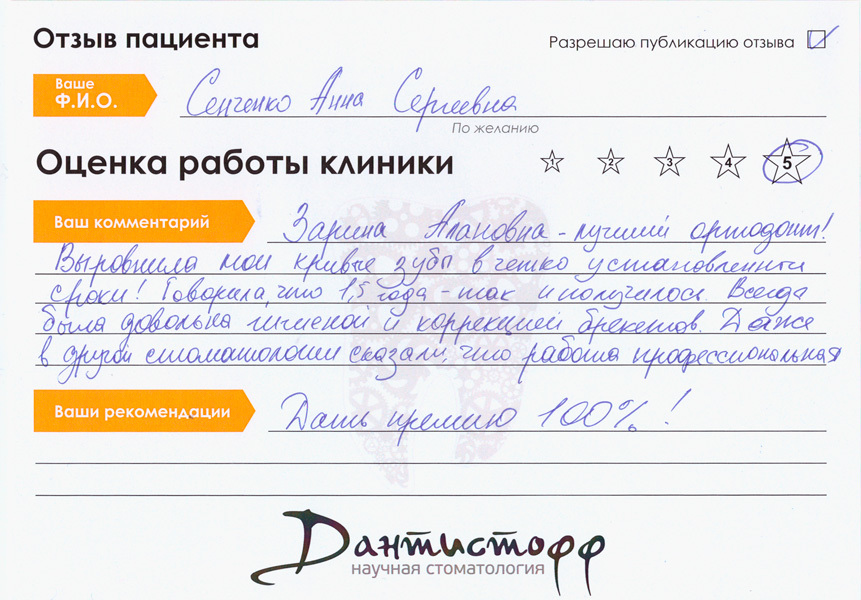 Отзыв пациента
Разрешаю публикацию отзыва
Ваше
Ф.И.О.
Сенченко Анна Сергеевна
По желанию
Оценка работы клиники
1 2 3 4 5
Ваш комментарий
Зарина Алановна - лучший ортодонт!
Выровнила мои кривые зубы в четко установленные
сроки! Говорила, что 1,5 года - так и получилось. Всегда
была довольна гигиеной и коррекцией брекетов. Даже
в другой стоматологии сказали, что работа профессиональная
Ваши рекомендации
Дать премию 100%!
Дантистофф
научная стоматология